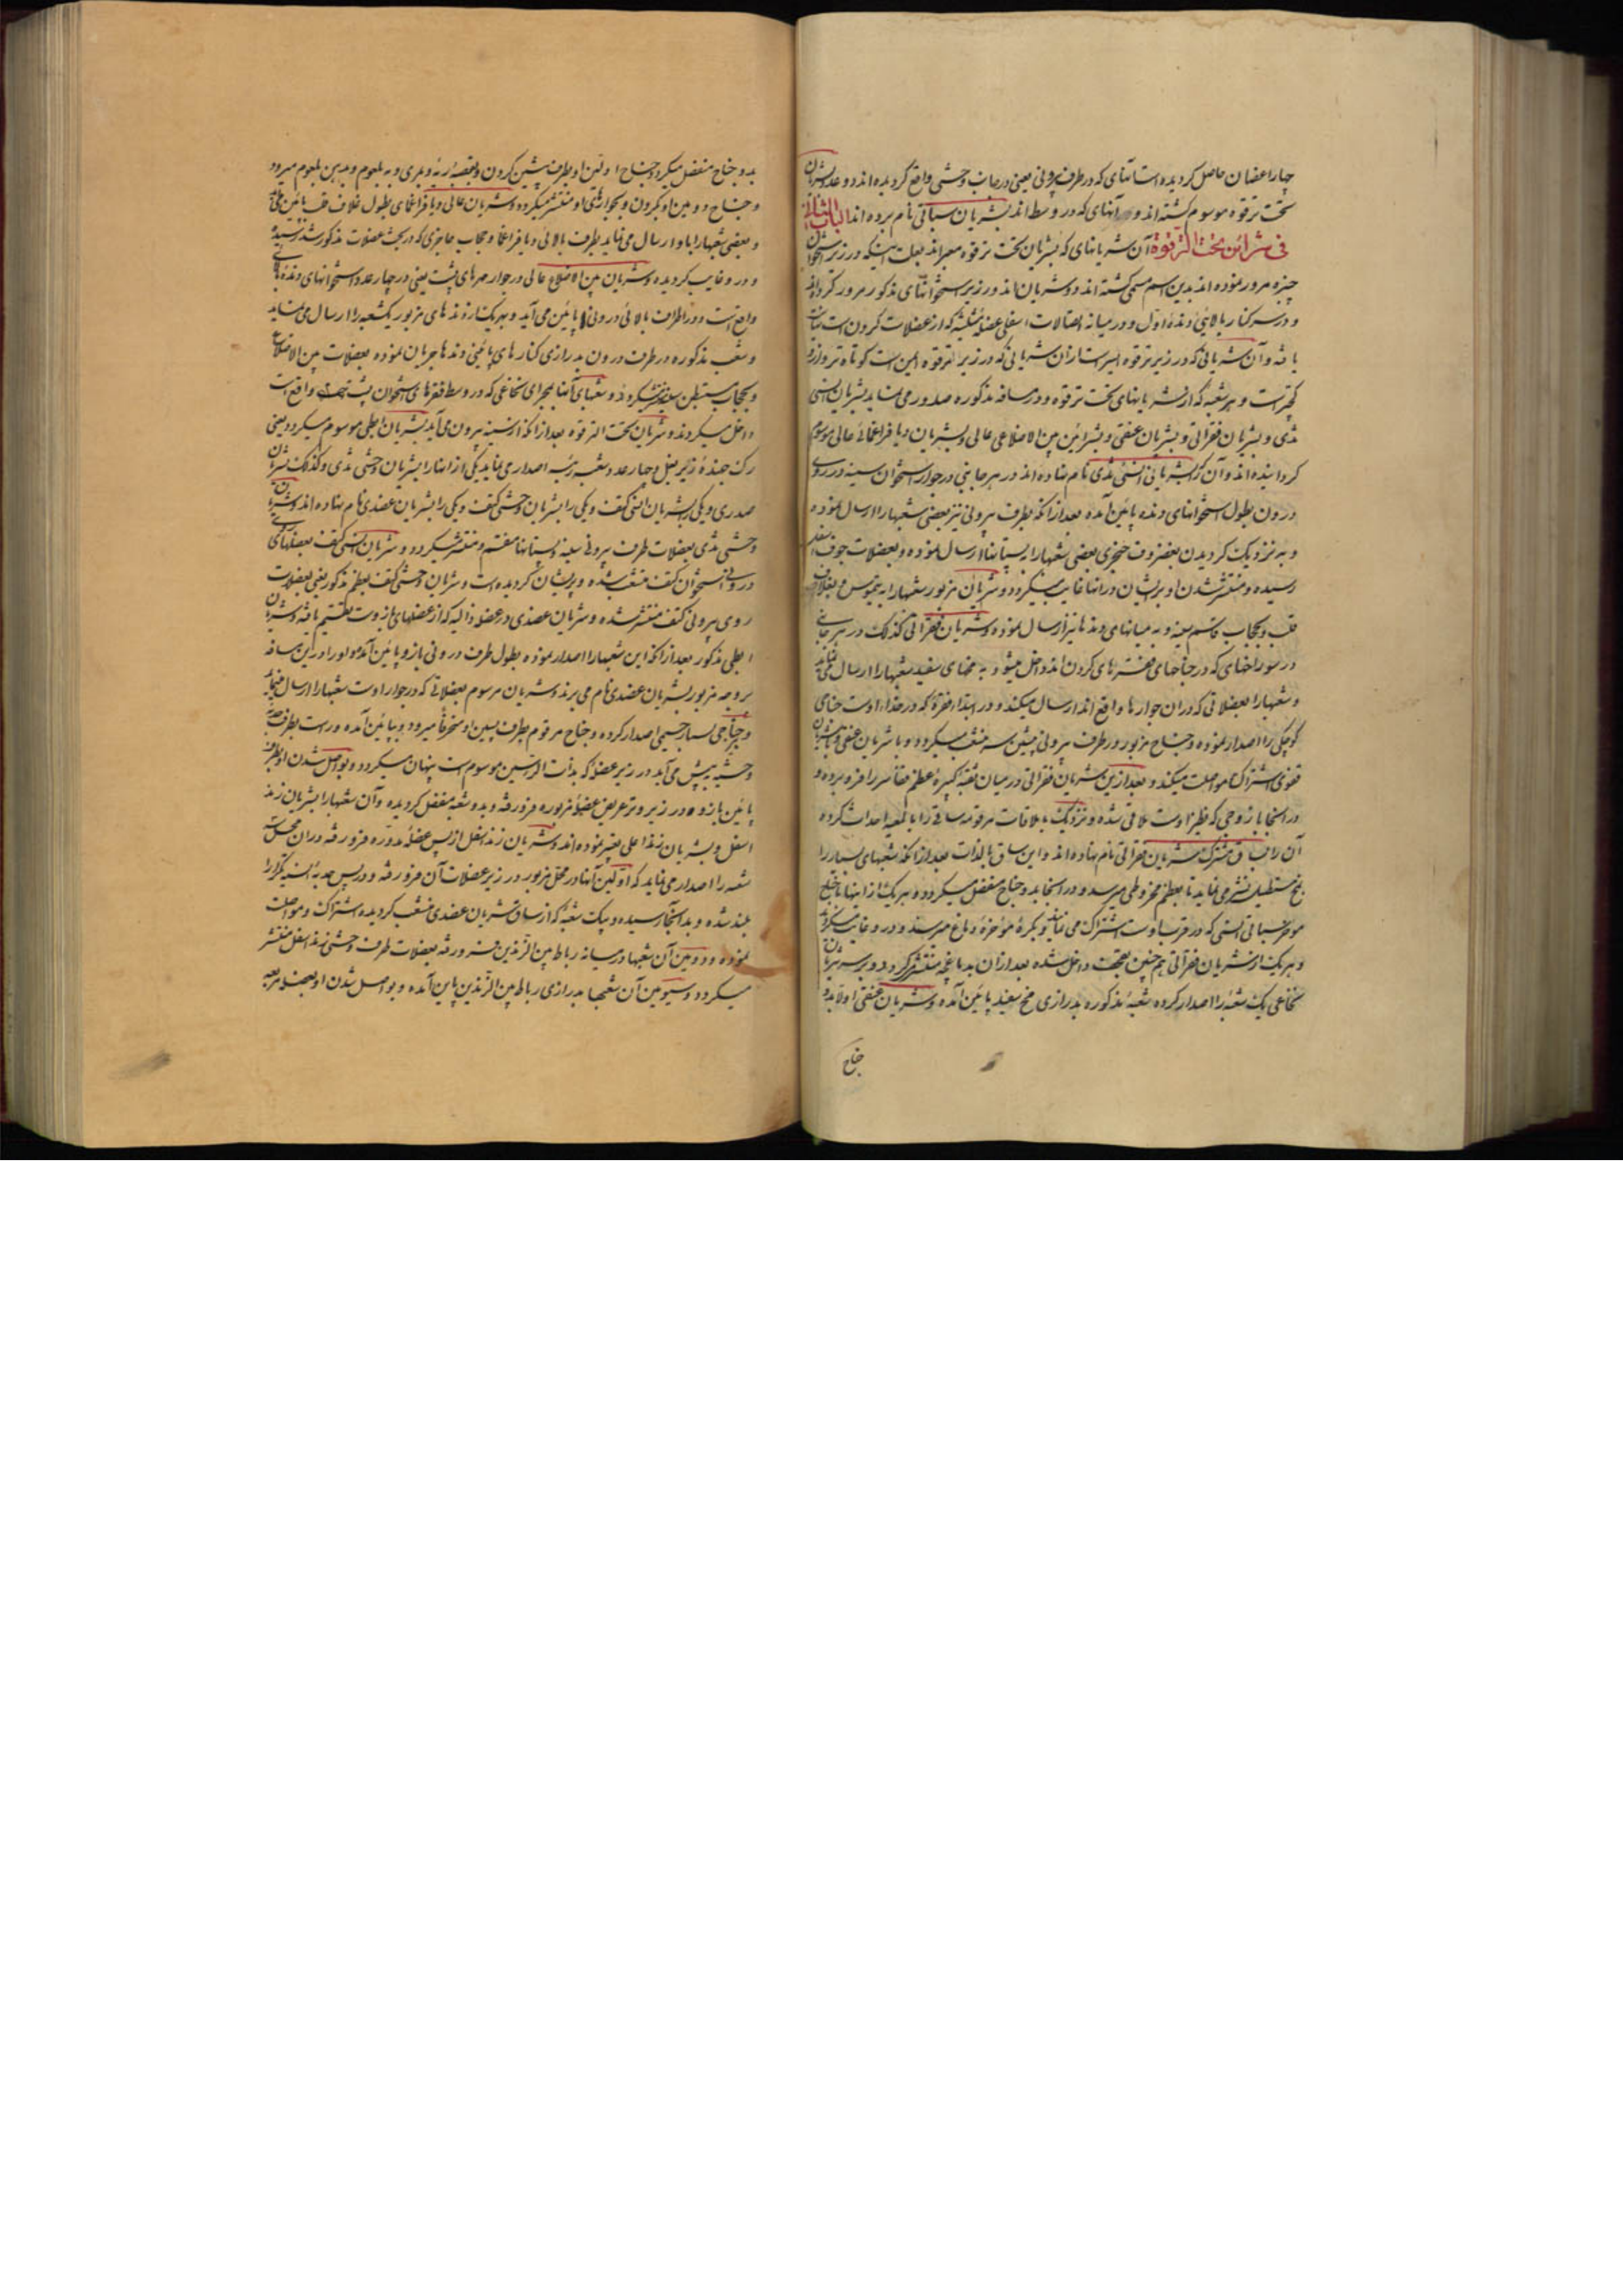 چهار اغصان حاصل کردیده است آنهای که در طرف بیرونی یعنی در جانب وحشی واقع کردیده‌اند دو عدد شریان
تحت ترقوه موسوم کشته‌اند و آنهای که در وسط‌اند بشریان سباتی نام برده‌اند الباب الثانی
فی شرائن تحت الترقوة آن شریانهای که بشریان تحت ترقوه معبراند بعلت اینکه در زیر استخوان
چنبره مرور نموده‌اند بدین اسم مسمی کشته‌اند و دو شریان‌اند در زیر استخوانهای مذکور مرور کرده‌اند
و در سر کنار بالائی دندهٔ اول و در میانه اتصالات اسفلی عضلهٔ مثلثه که از عضلات کردن است
یافته و آن شریانی که در زیر ترقوه ایسر است از آن شریانی که در زیر ترقوه ایمن است کوتاه‌تر
است و هر شعبه که از شریانهای تحت ترقوه و در مسافه مذکوره صدور می‌نماید بشریان انسی
ثدی و بشریان فقراتی و بشریان عنقی و بشرائین بین الاضلاعی عالی و بشریان دیافراغمای عالی موسوم
کردانیده‌اند و آن که بشریانی انسی ثدی نام نهاده‌اند در هر جانبی در جوار استخوان سینه در روی
درون بطول استخوانهای دنده پائین آمده بعد از آنکه بطرف بیرونی نیز بعضی شعبها را ارسال نموده
و به نزدیک کردیدن بغضروف خنجری بعضی شعبها را بپستانها ارسال نموده و بعضلات جوف اسفل
رسیده و منتشر شدن او پریشان در آنها غایب میکردد و شریان مزبور شعبها را به تیموس و بغلاف
قلب و بحجاب قاسم سینه و به میانهای دنده‌ها نیز ارسال نموده و شریان فقراتی کذلک در هر جانبی
در سوراخهای که در جناحهای فقره‌های کردن‌اند داخل میشود به مخهای سفید شعبها را ارسال می‌نماید
و شعبها را بعضلاتی که در آن جوارها واقع‌اند ارسال میکند و در ابتداء فقرهٔ که در حذاء اوست جناحی
کوچکی را اصدار نموده و جناح مزبور در طرف بیرونی پیشین سر منشعب میکردد و با شریان عنقی و با شریان
قفوی اشتراک مواصلت میکند و بعد ازین شریان فقراتی در میان ثقبه کبیرهٔ عظم قفا سر را فرو برده و
در آنجا با زوجی که نظیر اوست ملاقی شده و نزدیک بملاقات مرقومه ساقی را بالمعیه احداث کرده
آن را بساق مشترک شریان فقراتی نام نهاده‌اند و این ساق بالذات بعد از آنکه شعبهای بسیار را
بمخ مستطیل نشر می‌نماید تا بعظم مخروطی میرسد و در آنجا بدو جناح منفصل میکردد و هر یک از اینها با جناح
مؤخر سباتی انسی که در قرب اوست اشتراک می‌نماید و بکرهٔ مؤخرهٔ دماغ میرسند و در او غایب میکردند
و هر یک از شریان فقراتی هم چنین بقحف داخل شده بعد از آن بدماغچه منتشر کردد و بر سر شریان
نخاعی یک شعبهٔ را اصدار کرده شعبهٔ مذکوره بدرازی مخ سفید پائین آمده و شریان عنقی اولا بدو
جناح
بدو جناح منفصل میکردد جناح اولین او بطرف پیشین کردن و بقصبه ریه و بمری و به بلعوم و بدهن بلعوم میرود
و جناح دومین او بکردن و بجوارهای او منتشر میکردد و شریان عالی دیافراغمای بطول غلاف قلب پائین می‌آید
و بعضی شعبها را باو ارسال می‌نماید بطرف بالائی دیافراغما و حجاب حاجزی که در بحث عضلات مذکور شد رسیده
و در او غایب کردیده و شریان بین الاضلاع عالی در جوار مهرهای پشت یعنی در چهار عدد استخوانهای دنده‌های
واقع است و در اطراف بالائی درونی پائین می‌آید و بهر یک از دنده‌های مزبور یک شعبه را ارسال می‌نماید
و شعب مذکوره در طرف درون بدرازی کنارهای پائینی دنده‌ها جریان نموده بعضلات بین الاضلاع
و بحجاب مستبطن سینه منتشر میکردد و شعبهای آنها بمجرای نخاعی که در وسط فقرهای استخوان پشت واقع است
داخل میکردند و شریان تحت الترقوه بعد از آنکه از سینه بیرون می‌آید بشریان ابطی موسوم میکردد یعنی
رک جهندهٔ زیر بغل و چهار عدد شعب رئیسه اصدار می‌نماید یکی از اینها را بشریان وحشی ثدی و کذلک شریان
صدری و یکی را بشریان انسی کتف و یکی را بشریان وحشی کتف و یکی را بشریان عضدی نام نهاده‌اند و شریان
وحشی ثدی بعضلات طرف بیرونی سینه و پستانها منقسم و منتشر میکردد و شریان انسی کتف بعضلهای
درونی استخوان کتف منشعب شده و پریشان کردیده است و شریان وحشی کتف بعظم مذکور یعنی بعضلات
روی بیرونی کتف منتشر شده و شریان عضدی در عضلهٔ دالیه که از عضلهای بازوست تقسیم یافته و شریان
ابطی مذکور بعد از آنکه این شعبها را اصدار نموده بطول طرف درونی بازو پائین آمده او را درین مسافه
بر وجه مزبور بشریان عضدی نام می‌برند و شریان مرسوم بعضلاتی که در جوار اوست شعبها را ارسال می‌نماید
و جناحی بسیار جسیمی اصدار کرده و جناح مرقوم بطرف پسین او منحرفاً میرود و بپائین آمده و راست بطرف
وحشیه پیش می‌آید در زیر عضلهٔ که بذات الرأسین موسوم است پنهان میکردد و بواصل شدن او بطرف
پائین بازو در زیر وتر عریض عضلهٔ مزبوره فرو رفته و بدو شعبه منفصل کردیده و آن شعبها را بشریان زند
اسفل و بشریان زند اعلی تعبیر نموده‌اند و شریان زند اسفل از پس عضلهٔ مدوره فرو رفته در آن محل سه
شعبه را اصدار می‌نماید که اولین آنها در محل مزبور در زیر عضلات آن فرو رفته و در پس حدبهٔ انسیه تکرار
بلند شده و بدانجا رسیده و بیک شعبه که از ساق شریان عضدی منشعب کردیده اشتراک و مواصلت
نموده و دومین آن شعبها در میانه رباط بین الزندین فرو رفته بعضلات طرف وحشی زند اسفل منتشر
میکردد و سیومین آن شعبها بدرازی رباط بین الزندین پائین آمده و بواصل شدن او بعضله مربعه